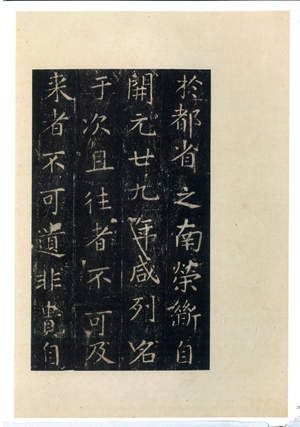 於都省之南榮斲自
開元廿九年咸列名
于次且往者不可及
来者不可遺非貴自